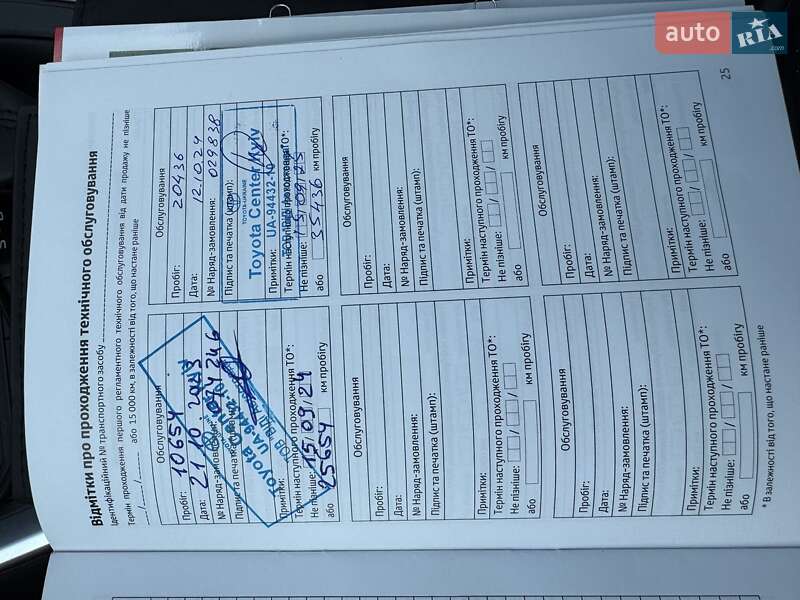 auto RIA.com
Відмітки про проходження технічного обслуговування
Ідентифікаційний № транспортного засобу
Термін проходження першого регламентного технічного обслуговування від дати продажу не пізніше
/ / або 15 000 км, в залежності від того, що настане раніше
Обслуговування
Пробіг: 10654
Дата: 21 10 2023
№ Наряд-замовлення:
Підпис та печатка
Toyota
Примітки:
Термін наступного проходження ТО*:
Не пізніше: 15/09/24
або 25654 км пробігу
Обслуговування
Пробіг: 20436
Дата: 12.10.24
№ Наряд-замовлення: 029838
Підпис та печатка (штамп):
TOYOTA-UKRAINE
Toyota Center Kyiv
UA-94432-10
Примітки:
Термін наступного проходження ТО*:
Не пізніше: 15/09/25
або 35436 км пробігу
Обслуговування
Пробіг:
Дата:
№ Наряд-замовлення:
Підпис та печатка (штамп):
Примітки:
Термін наступного проходження ТО*:
Не пізніше: / /
або км пробігу
Обслуговування
Пробіг:
Дата:
№ Наряд-замовлення:
Підпис та печатка (штамп):
Примітки:
Термін наступного проходження ТО*:
Не пізніше: / /
або км пробігу
Обслуговування
Пробіг:
Дата:
№ Наряд-замовлення:
Підпис та печатка (штамп):
Примітки:
Термін наступного проходження ТО*:
Не пізніше: / /
або км пробігу
Обслуговування
Пробіг:
Дата:
№ Наряд-замовлення:
Підпис та печатка (штамп):
Примітки:
Термін наступного проходження ТО*:
Не пізніше: / /
або км пробігу
* В залежності від того, що настане раніше
25